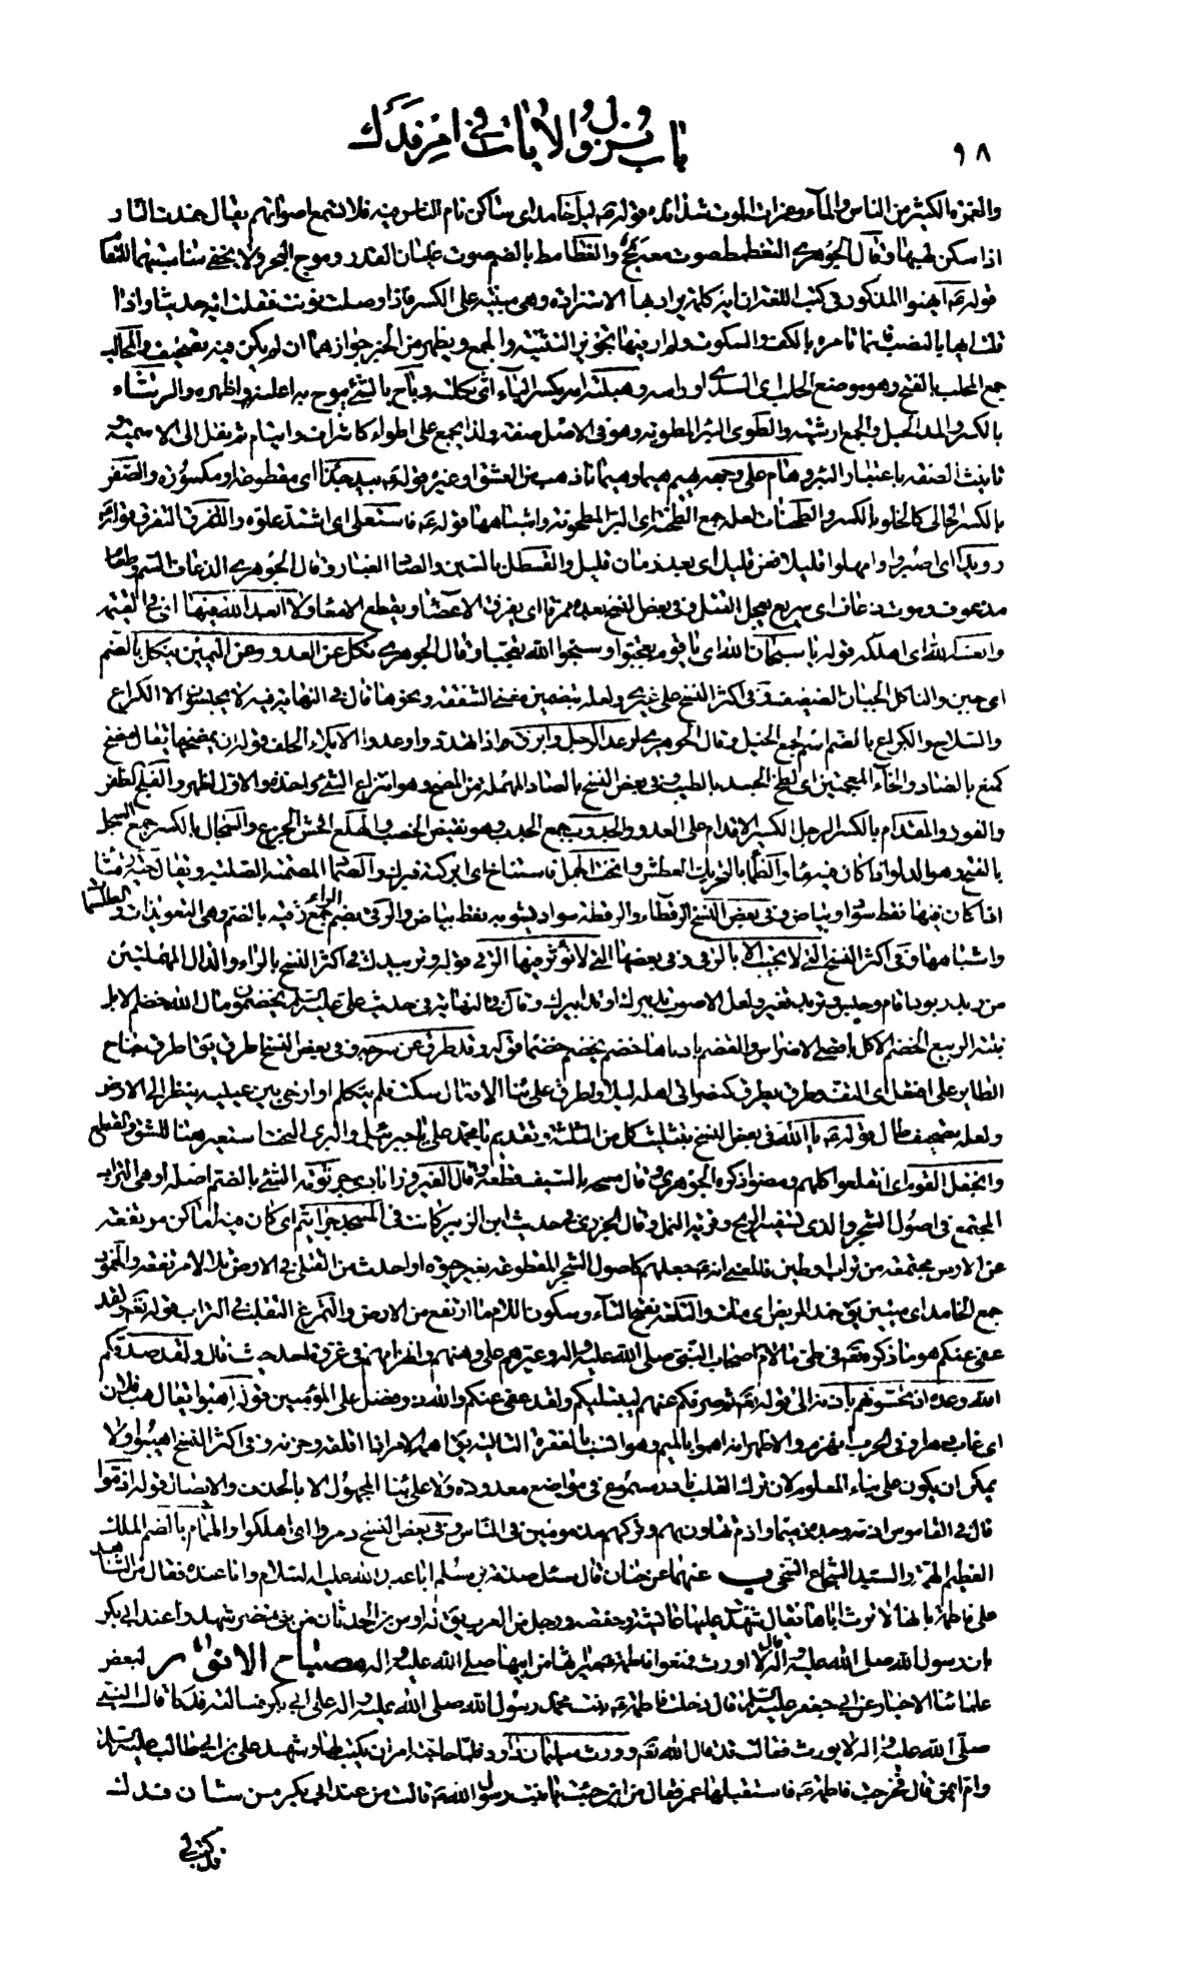 ٩٨
باب نزول الآيات في امر فدك
والغمرة الكثير من الناس والماء وغمرات الموت شدائده قوله ليل خامد اى ساكن نام الناس فيه فلا تسمع اصواتهم يقال خمدت النار
اذا سكن لهبها وقال الجوهرى التغطمط صوت معه بحح والغطامط بالضم صوت غليان القدر وموج البحر ولا يخفى مناسبتهما للمقام
قوله ايهنوا المذكور في كتب اللغة ان ايه كلمة يراد بها الاستزادة وهى مبنية على الكسر فاذا وصلت نونت فقلت ايه حديثا واذا
قلت ايها بالنصب فانما تامره بالكف والسكوت ولم ار فيها تجويز التثنية والجمع ويظهر من الخبر جوازهما ان لم يكن فيه تصحيف والمحالب
جمع المحلب بالفتح وهو موضع الحلب اى الثدى او راسه وهبلته امه بكسر الباء اى ثكلته وباح بالشئ يبوح به اعلنه واظهره والرشاء
بالكسر والمد الحبل والجمع ارشية والطوى البئر المطوية وهو في الاصل صفة ولذا يجمع على اطواء كاشراف وايتام ثم نقل الى الاسمية و
تانيث الصفة باعتبار البئر وهام على وجهه يهيم هيما وهيمانا ذهب من العشق او غيره قوله بيد جذاء اى مقطوعة او مكسورة والصفر
بالكسر الخالى كالخلو بالكسر والطحنات لعله جمع الطحنة اى البر المطحونة واشباهها قوله فاستعلى اى اشتد علوه والتفرق التفرق قوله
رويدا اى اصبروا وامهلوا قليلا فعن قليل اى بعد زمان قليل والقسطل بالسين والصاد الغبار وقال الجوهرى الذعاف السم وطعام
مذعوف وموت ذعاف اى سريع يعجل القتل وفي بعض النسخ بعده ممزقا اى يفرق الاعضاء ويقطع الامعاء ولا ابعد الله فيها اى في الفتنة
وابعده الله اى اهلكه قوله يا سبحان الله اى يا قوم تعجبوا وسبحوا الله تعجبا وقال الجوهرى نكل عن العدو وعن اليمين ينكل بالضم
اى جبن والناكل الجبان الضعيف وفي اكثر النسخ على غيره ولعله بتضمين معنى الشفقة ونحوها قال في النهاية فيه لا يحبسون الا الكراع
والسلاح والكراع بالضم اسم لجمع الخيل وقال الجوهرى رعد الرجل وابرق اذا تهدد واوعد والايلاء الحلف قوله يمضخها يقال مضخ
كمنع بالضاد والخاء المعجمتين اى لطخ الجسد بالطيب وفي بعض النسخ بالصاد المهملة من المصخ وهو انتزاع الشئ واخذه والاول اظهر والفلج الظفر
والفوز والمقدام بالكسر الرجل الكثير الاقدام على العدو والجدوب جمع الجدب وهو نقيض الخصب والهلع افحش الجزع والسجال بالكسر جمع السجل
بالفتح وهو الدلو اذا كان فيه ماء والظمأ بالتحريك العطش وانخت الجمل فاستناخ اى ابركته فبرك والصماء المصمتة الصلبة ويقال حية رقشاء
اذا كان فيها نقط سواد وبياض وفي بعض النسخ الرقطاء والرقطة سواد يشوبه نقط بياض والرقى بضم الراء جمع رقية بالضم وهى التعويذات والطلسمات
واشباهها وفي اكثر النسخ التى لا تجيب الا بالرقى وفي بعضها التى لا تؤثر فيها الرقى قوله وتربيدك في اكثر النسخ بالراء والدال المهملتين
من ربد ربودا قام وحبس وتربد تغير ولعل الاصوب تدبيرك او تدابيرك وقال في النهاية في حديث على عليه السلم يخضمون مال الله خضم الابل
نبتة الربيع الخضم الاكل باقصى الاضراس والقضم بادناها خضم يخضم خضما قوله وقد طرف عن سرجه وفي بعض النسخ اطرق يقال اطرق جناح
الطائر على افتعل اى التف وطرق يطرق كنصر اتى اهله ليلا واطرق على بناء الافعال سكت فلم يتكلم او ارخى عينيه ينظر الى الارض
ولعله تصحيف طال قوله يا الله في بعض النسخ بتثليث كل من الثلثة وتقديم يا محمد على يا جبرئيل والبرى النحت استعير هنا للشق والقطع
وانجفل القوم اى انقلعوا كلهم ومضوا ذكره الجوهرى وقال مسحه بالسيف قطعه وقال الفيروزابادى جرثومة الشئ بالضم اصله او هى التراب
المجتمع في اصول الشجر والذى تسفيه الريح وقرية النمل وقال الجزرى في حديث ابن الزبير كانت في المسجد جراثيم اى كان فيه اماكن مرتفعة
عن الارض مجتمعة من تراب وطين فالمعنى انه جعلهم كاصول الشجر المقطوعة بغير حيوة او احدث من القتلى في الارض تلالا مرتفعة والخمود
جمع الخامد اى ميتين يقال خمد المريض اى مات والتلعة بفتح التاء وسكون اللام ما ارتفع من الارض والتمرغ التقلب في التراب قوله تعالى ولقد
عفى عنكم هو ما ذكره تعالى في طى ملام اصحاب النبى صلى الله عليه واله وعيرهم على وهنهم وانهزامهم في غزوة احد حيث قال ولقد صدقكم
الله وعده اذ تحسونهم باذنه الى قوله تعالى ثم صرفكم عنهم ليبتليكم ولقد عفى عنكم والله ذو فضل على المؤمنين قوله اهبوا يقال هب فلان
اى غاب دهرا وفي الحرب انهزم والاظهر انه اهموا بالميم وهو انسب بالفقرة التالية يقال اهمه الامر اذا اقلقه وحزنه وفي اكثر النسخ اهيبوا ولا
يمكن ان يكون على بناء المعلوم لان ترك القلب نادر مسموع في مواضع معدودة ولا على بناء المجهول الا بالحذف والايصال قوله اذموا
قال في القاموس اذمه وجده ذميما واذم تهاون بهم وتركهم مذمومين في الناس وفي بعض النسخ دمروا اى اهلكوا والهمام بالضم الملك
العظيم الهمة والسيد الشجاع السخى ب عنهما عن حنان قال سئل صدقة بن مسلم ابا عبد الله عليه السلام وانا عنده فقال من الشاهد
على فاطمة بانها لا ترث اباها فقال شهدت عليها عايشة وحفصة ورجل من العرب يقال له اوس بن الحدثان من بنى نضر شهدوا عند ابى بكر
بان رسول الله صلى الله عليه واله قال لا اورث فمنعوا فاطمة ميراثها من ابيها صلى الله عليه واله مصباح الانوار لبعض
علمائنا الاخيار عن ابى جعفر عليه السلم قال دخلت فاطمة بنت محمد رسول الله صلى الله عليه واله على ابى بكر فسالته فدكا قال النبى
صلى الله عليه واله لا يورث فقالت قد قال الله تعالى وورث سليمان داود فلما حاجته امر ان يكتب لها وشهد على بن ابى طالب عليه السلم
وام ايمن قال فخرجت فاطمة فاستقبلها عمر فقال من اين جئت يا بنت رسول الله قالت من عند ابى بكر من شان فدك
قد كتب لى